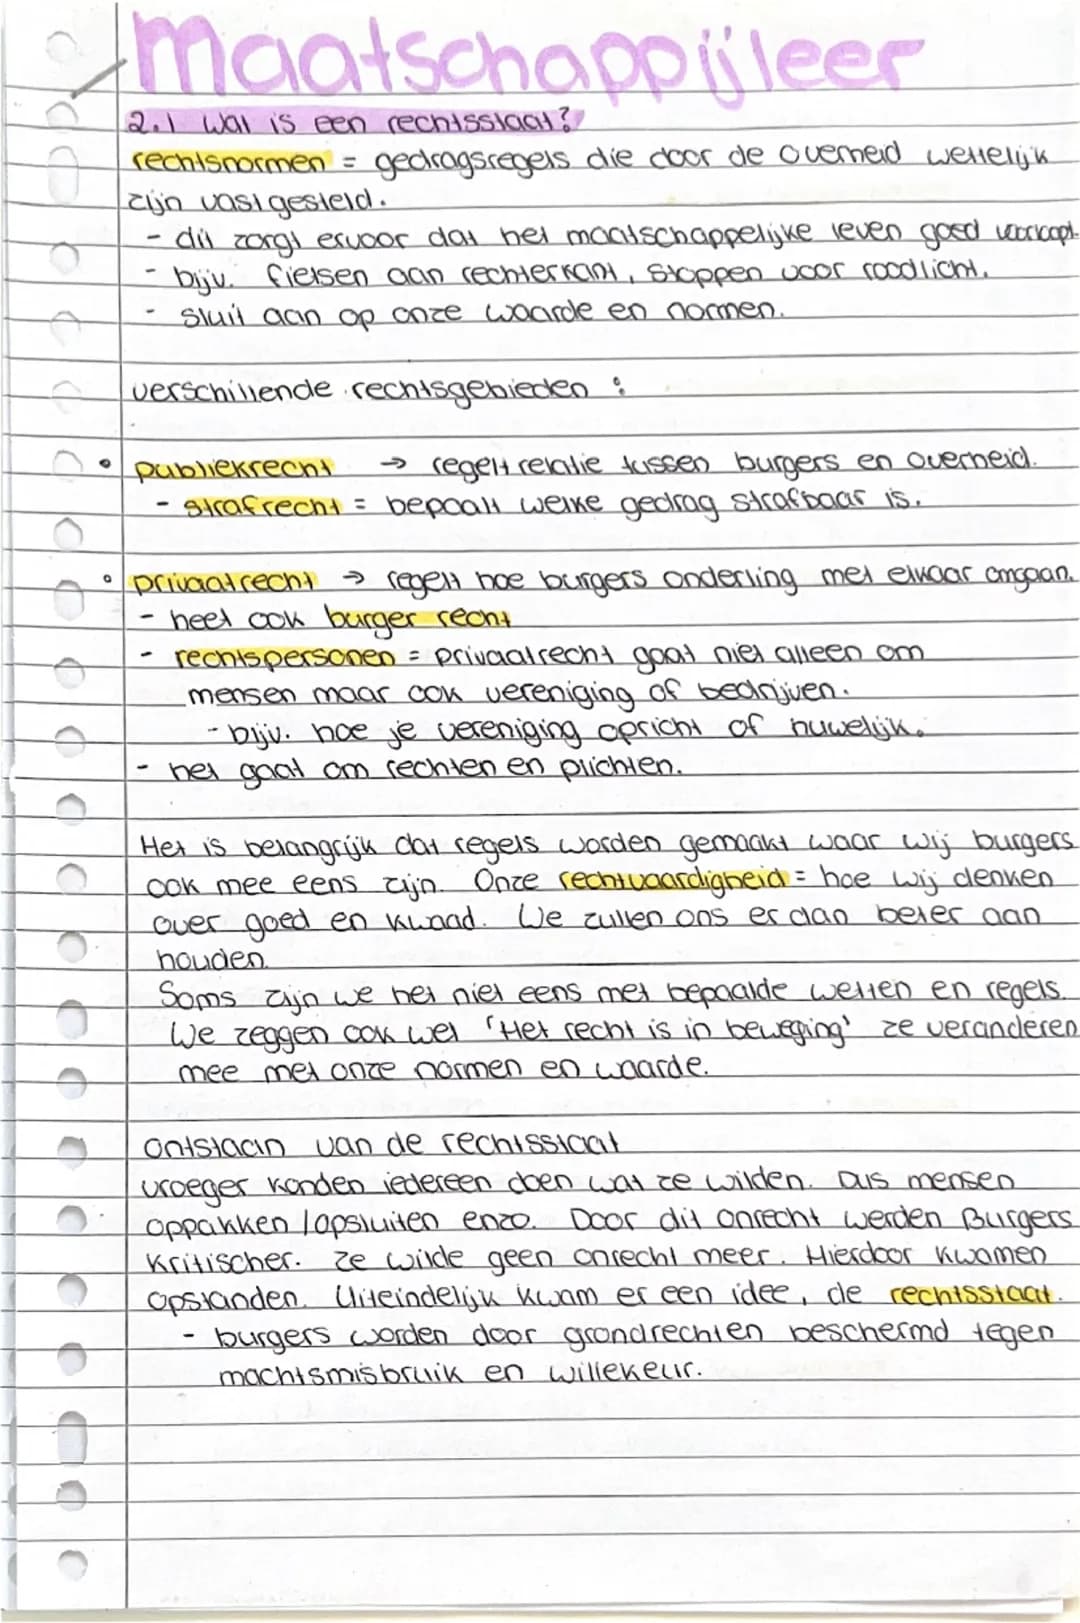 maatschappijleer
2.1 wat is een rechtsstaat?
rechtsnormen = gedragsregels die door de overheid wettelijk
zijn vastgesteld.
- dit zorgt ervoor dat het maatschappelijke leven goed verloopt.
- bijv. fietsen aan rechterkant, stoppen voor roodlicht.
- sluit aan op onze waarde en normen.
verschillende rechtsgebieden :
• publiekrecht → regelt relatie tussen burgers en overheid.
- strafrecht = bepaalt welke gedrag strafbaar is.
• privaatrecht → regelt hoe burgers onderling met elkaar omgaan.
- heet ook burger recht
- rechtspersonen = privaatrecht gaat niet alleen om
mensen maar ook vereniging of bedrijven.
- bijv. hoe je vereniging opricht of huwelijk.
- het gaat om rechten en plichten.
Het is belangrijk dat regels worden gemaakt waar wij burgers
ook mee eens zijn. Onze rechtvaardigheid = hoe wij denken
over goed en kwaad. We zullen ons er dan beter aan
houden.
Soms zijn we het niet eens met bepaalde wetten en regels.
We zeggen ook wel 'Het recht is in beweging' ze veranderen
mee met onze normen en waarde.
ontstaan van de rechtsstaat
vroeger konden iedereen doen wat ze wilden. Dus mensen
oppakken / opsluiten enzo. Door dit onrecht werden Burgers
kritischer. Ze wilde geen onrecht meer. Hierdoor kwamen
opstanden. Uiteindelijk kwam er een idee, de rechtsstaat.
- burgers worden door grondrechten beschermd tegen
machtsmisbruik en willekeur.